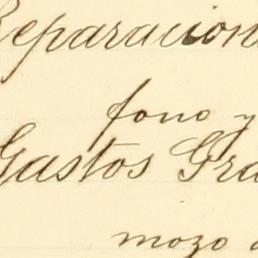 Reparacion
fono y
Gastos Gra
mozo